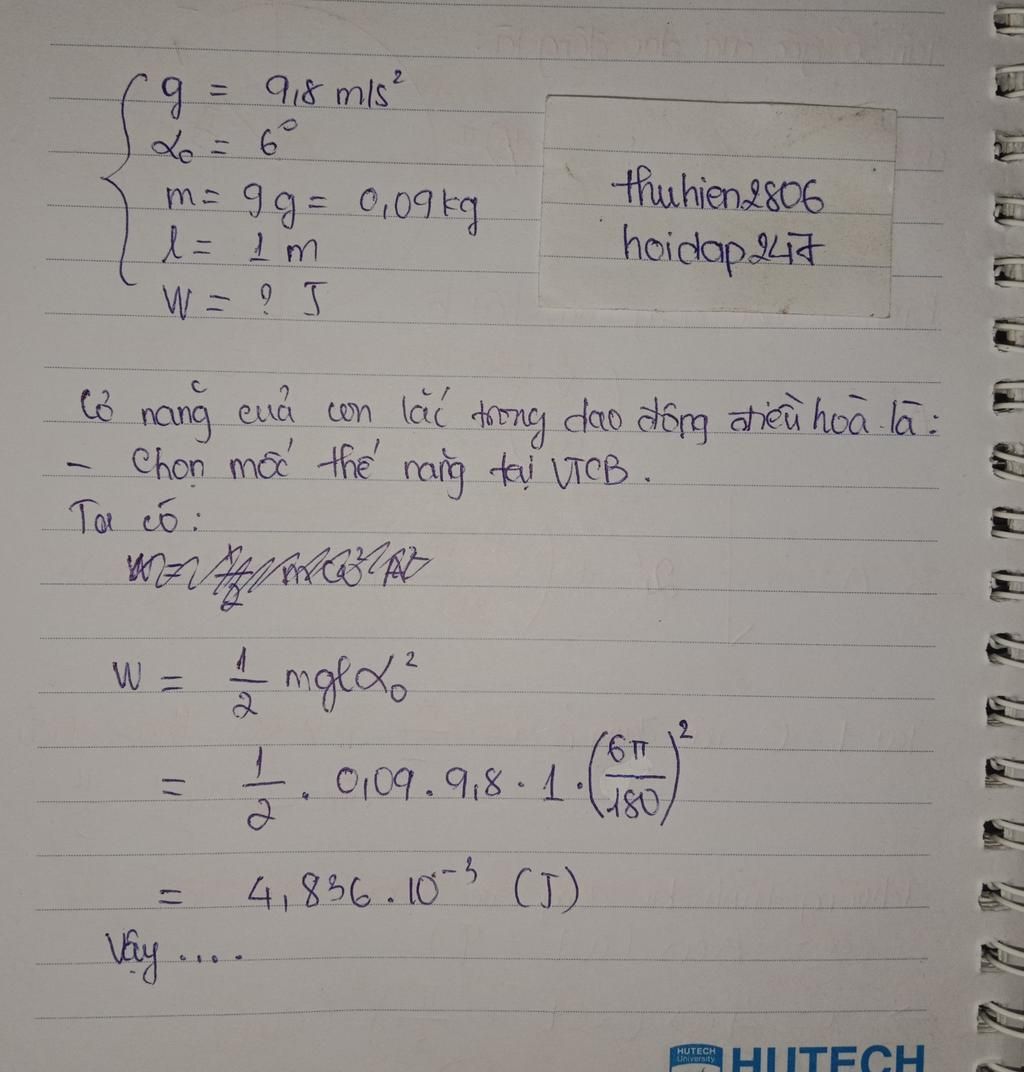 g = 9,8 m/s²
α₀ = 6°
m = 9g = 0,09 kg
l = 1 m
W = ? J
thuhien2806
hoidap247
Cơ năng của con lắc trong dao động điều hoà là:
- Chọn mốc thế năng tại VTCB.
Ta có:
W = 1/2 mglα₀²
= 1/2 . 0,09 . 9,8 . 1 . (6π/180)²
= 4,836.10⁻³ (J)
Vậy ....
HUTECH
University
HUTECH